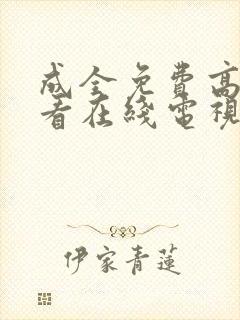 成全免费高
看在线電視
伊家青蓮